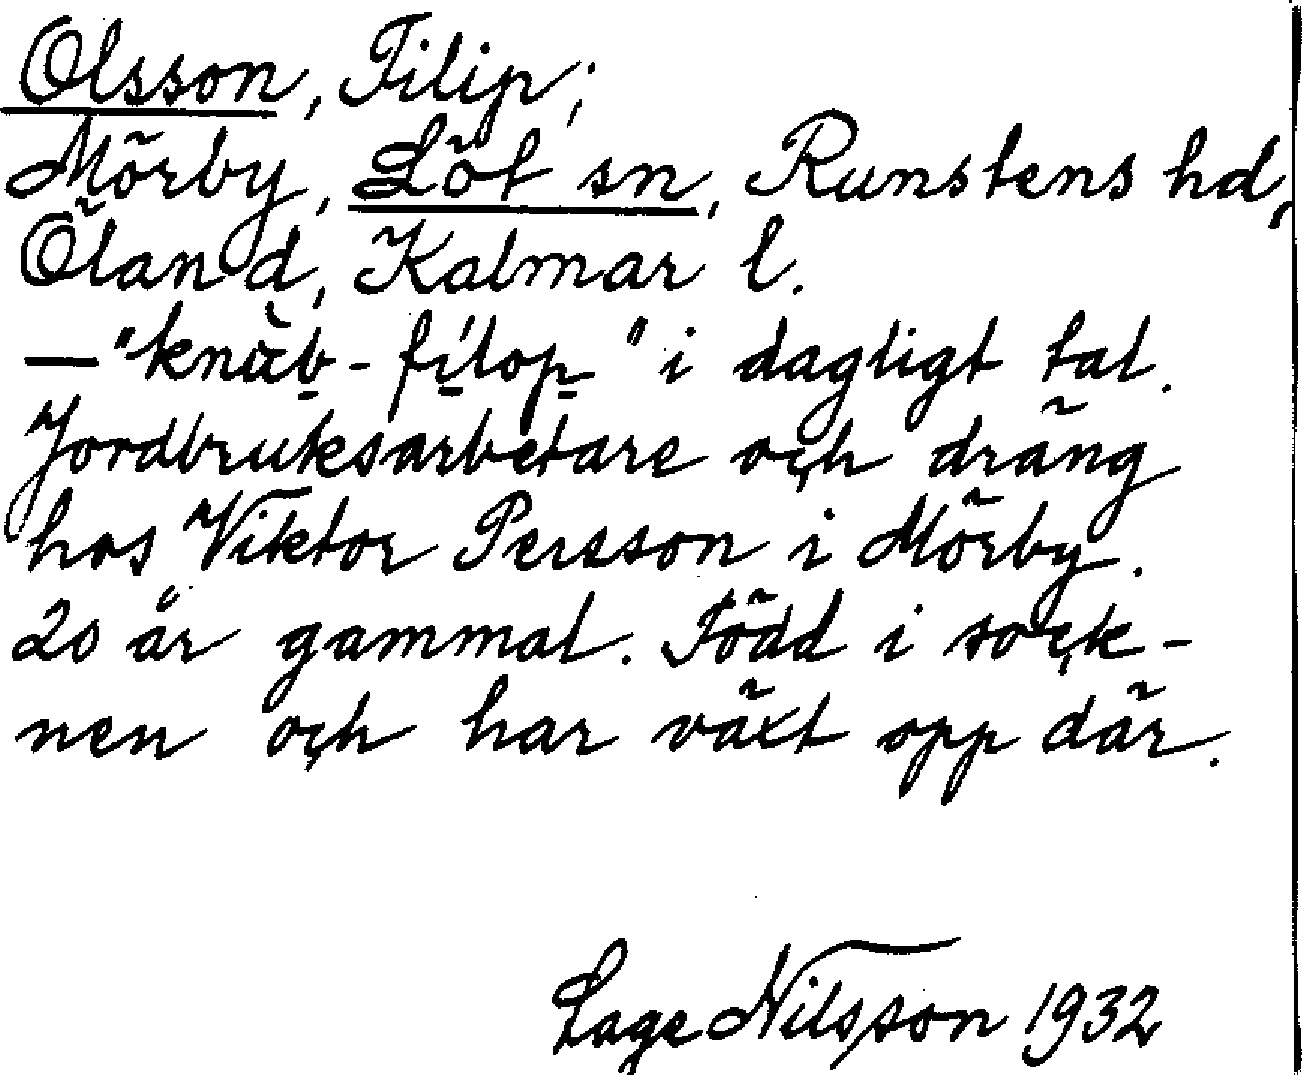 Olsson, Filip;
Mörby, Löt sn, Runstens hd,
Öland, Kalmar l.
—"knäb-filop" i dagligt tal.
Jordbruksarbetare och dräng
hos Viktor Persson i Mörby.
20 år gammal. Född i sock-
nen och har växt opp där.
Lage Nilsson 1932